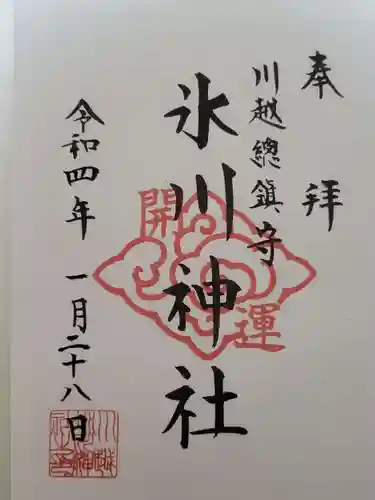 奉拝
川越總鎮守
氷川神社
開運
令和四年 一月二十八日